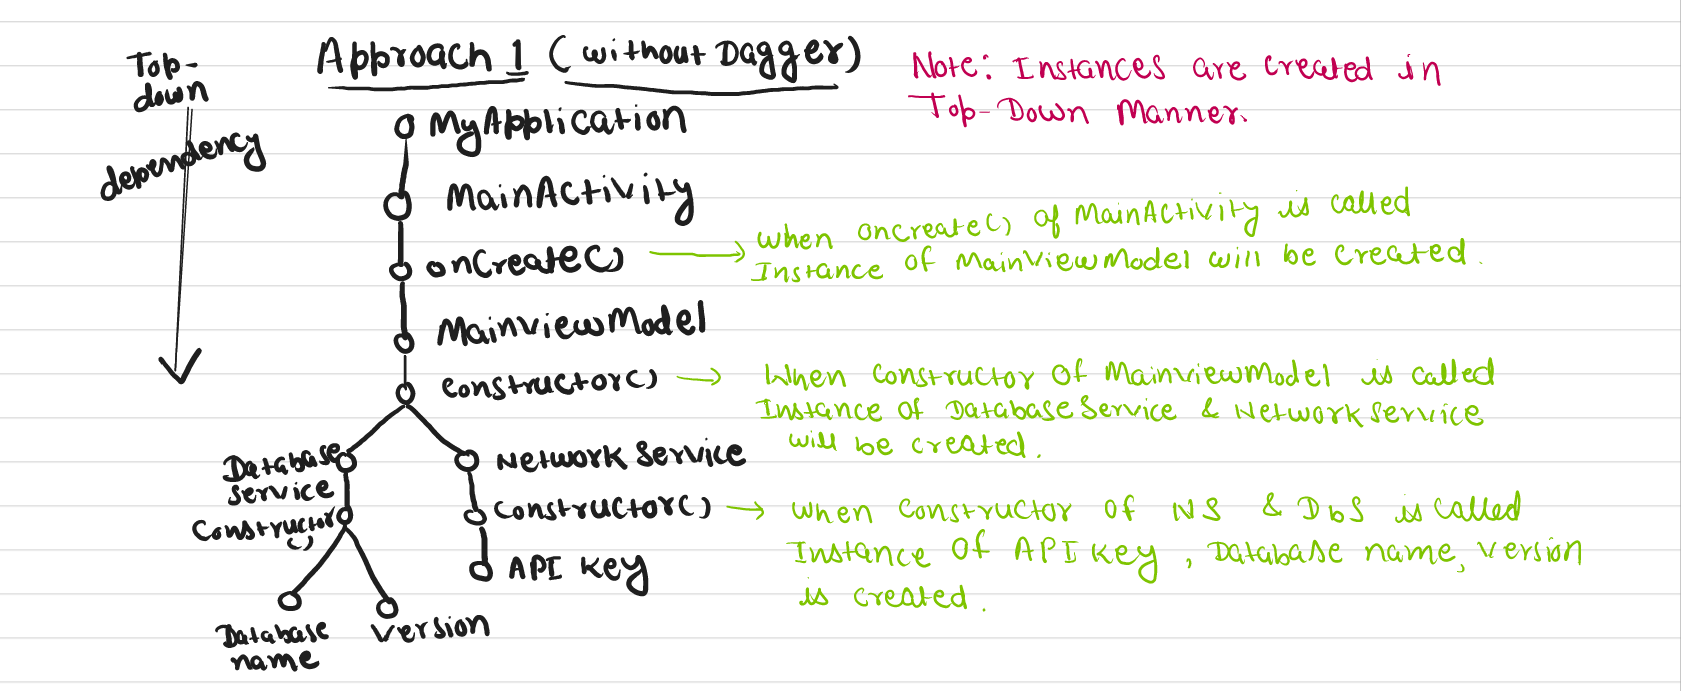 Top-
down
dependency
Approach 1 (without Dagger)
Note: Instances are created in
Top-Down Manner.
MyApplication
MainActivity
onCreate()
when onCreate() of MainActivity is called
Instance of MainViewModel will be created.
MainviewModel
constructor()
When constructor of MainviewModel is called
Instance of DatabaseService & NetworkService
will be created.
Database
service
Constructor
()
Network Service
Constructor()
when constructor of NS & DbS is called
Instance of API Key, Database name, version
is created.
API Key
Database
name
Version